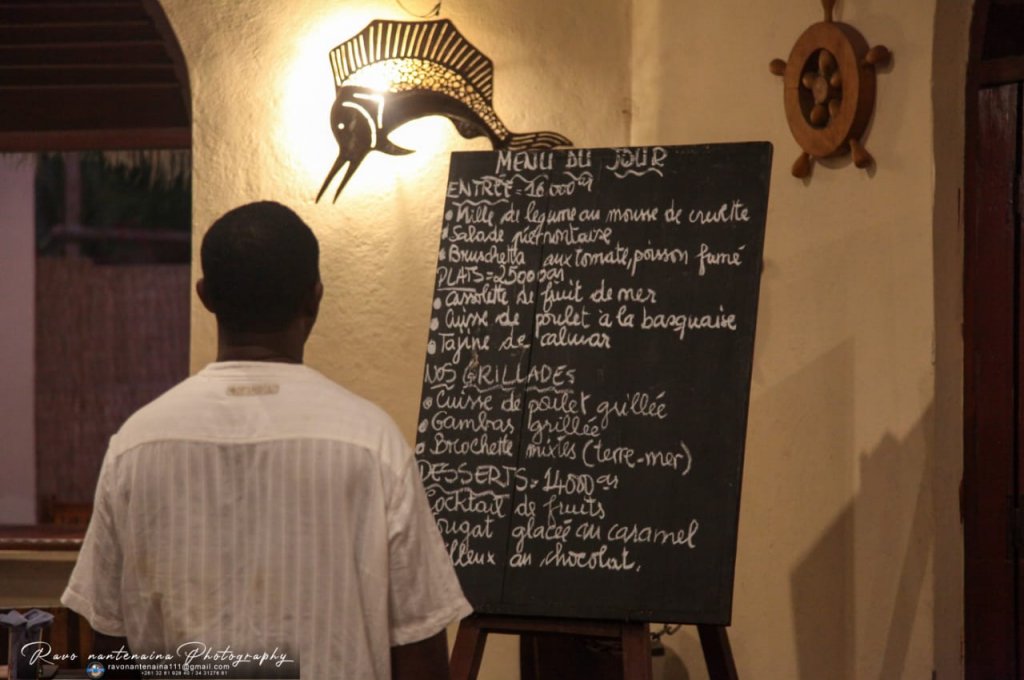 MENU DU JOUR
ENTREE = 16 000 ar
• Mille de legume au mousse de crevette
• Salade piemontaise
• Bruschetta aux tomate, poisson fumé
PLATS = 25000 ar
• Cassolette de fruit de mer
• Cuisse de poulet à la basquaise
• Tajine de calmar
NOS GRILLADES
• Cuisse de poulet grillée
• Gambas grillée
• Brochette mixtes (terre-mer)
DESSERTS = 14000 ar
Cocktail de fruits
ougat glacée au caramel
lleux au chocolat.
Ravo nantenaina Photography
ravonantenaina111@gmail.com